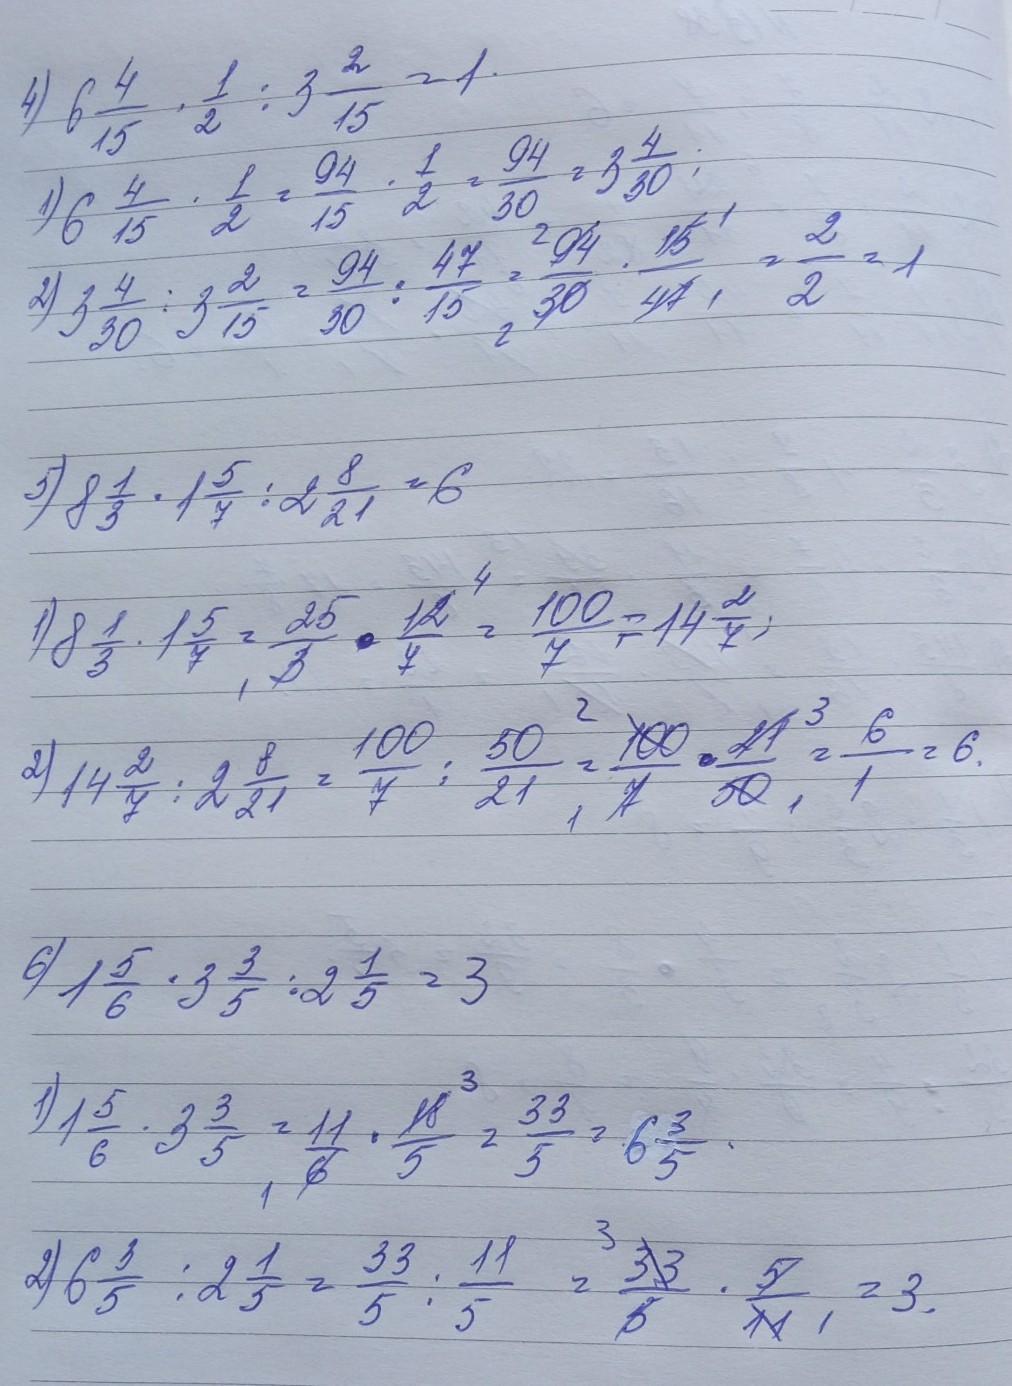 4) 6 4/15 · 1/2 : 3 2/15 = 1.
1) 6 4/15 · 1/2 = 94/15 · 1/2 = 94/30 = 3 4/30;
2) 3 4/30 : 3 2/15 = 94/30 : 47/15 = 94/30 · 15/47 = 2/2 = 1
5) 8 1/3 · 1 5/7 : 2 8/21 = 6
1) 8 1/3 · 1 5/7 = 25/3 · 12/7 = 100/7 = 14 2/7;
2) 14 2/7 : 2 8/21 = 100/7 : 50/21 = 100/7 · 21/50 = 6/1 = 6.
6) 1 5/6 · 3 3/5 : 2 1/5 = 3
1) 1 5/6 · 3 3/5 = 11/6 · 18/5 = 33/5 = 6 3/5.
2) 6 3/5 : 2 1/5 = 33/5 : 11/5 = 33/5 · 5/11 = 3.